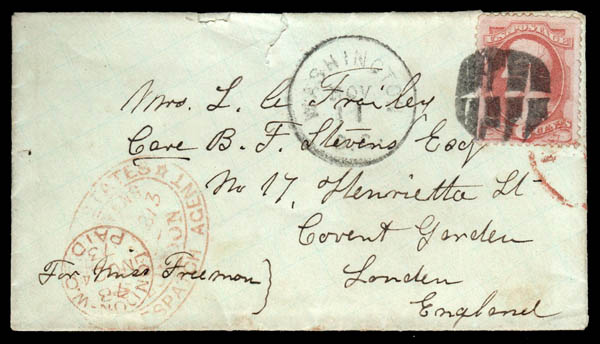 U.S. POSTAGE
WASHINGTON
NOV
11
D.C.
Mrs. L. A. Frailey
Care B. F. Stevens Esq
No 17, Henrietta St
Covent Garden
London
England
For Miss Freeman
STATES
DESPATCH AGENT
LONDON
PAID
LONDON-W.C